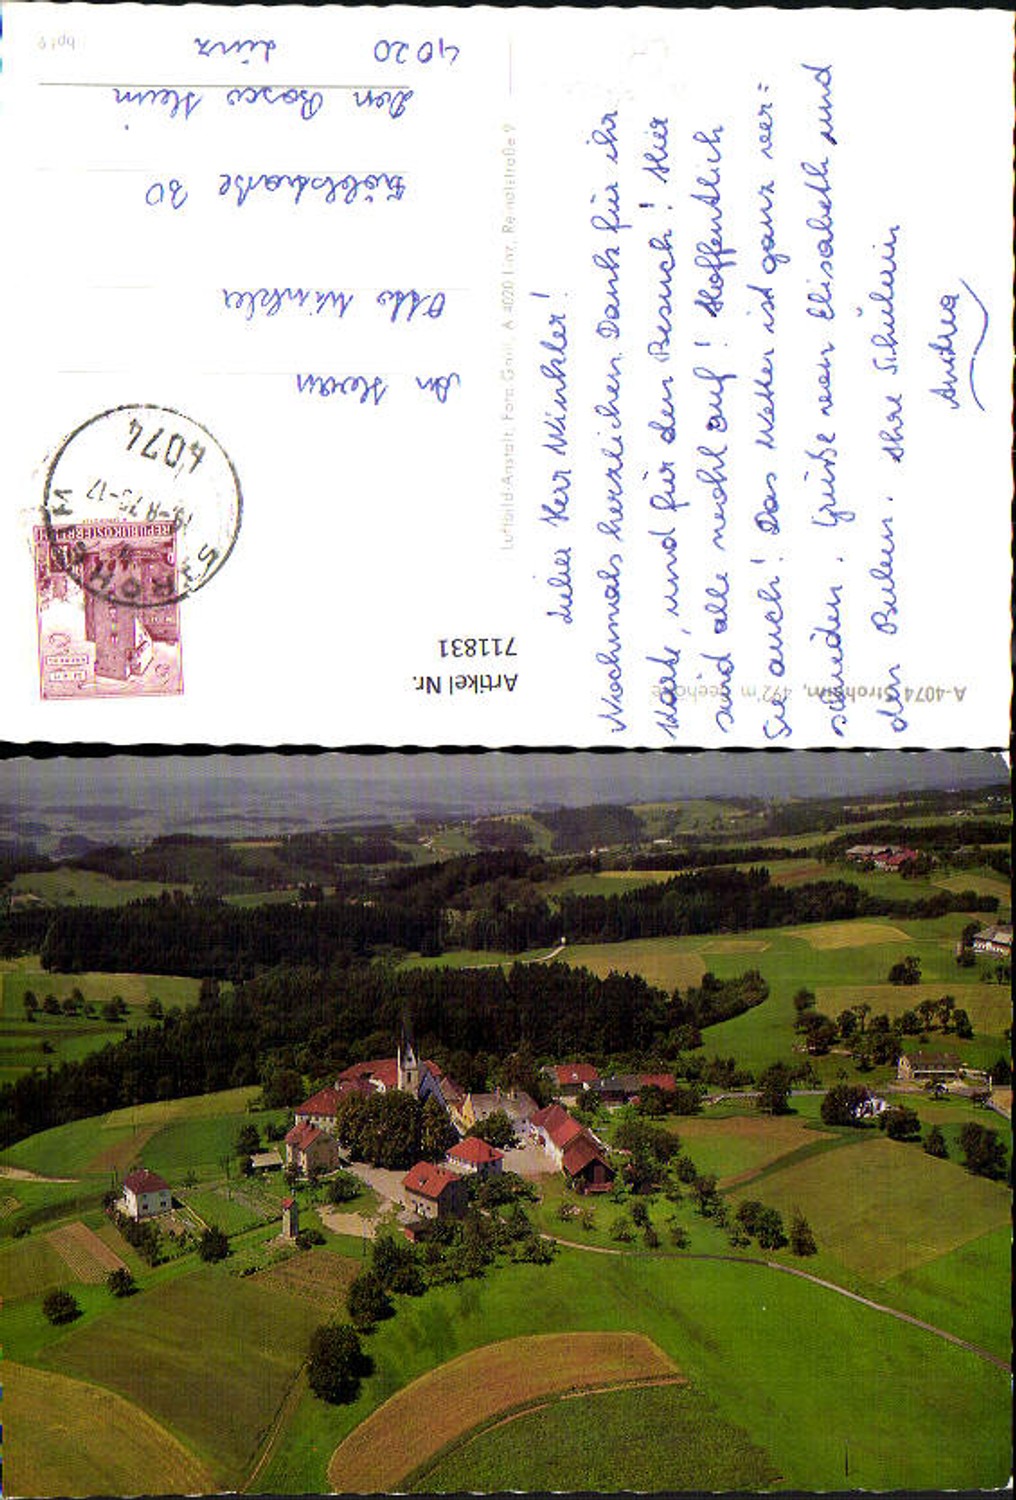 Lieber Herr Winkler!
Nochmals herzlichen Dank für ihr
Karte, und für den Besuch! Hier
sind alle wohl auf! Hoffentlich
Sie auch! Das Wetter ist ganz ver=
schieden. Grüße von Elisabeth und
den Buben. Ihre Schülerin
Andrea
An Herrn
Otto Winkler
Fröbelstraße 30
Don Bosco Heim
4020 Linz
Artikel Nr.
711831
A-4074 Stroheim, 492 m Seehöhe
Luftbild-Anstalt, Foto Groll, A 4020 Linz, Reindlstraße 9
4074
STROHEIM
REPUBLIK ÖSTERREICH